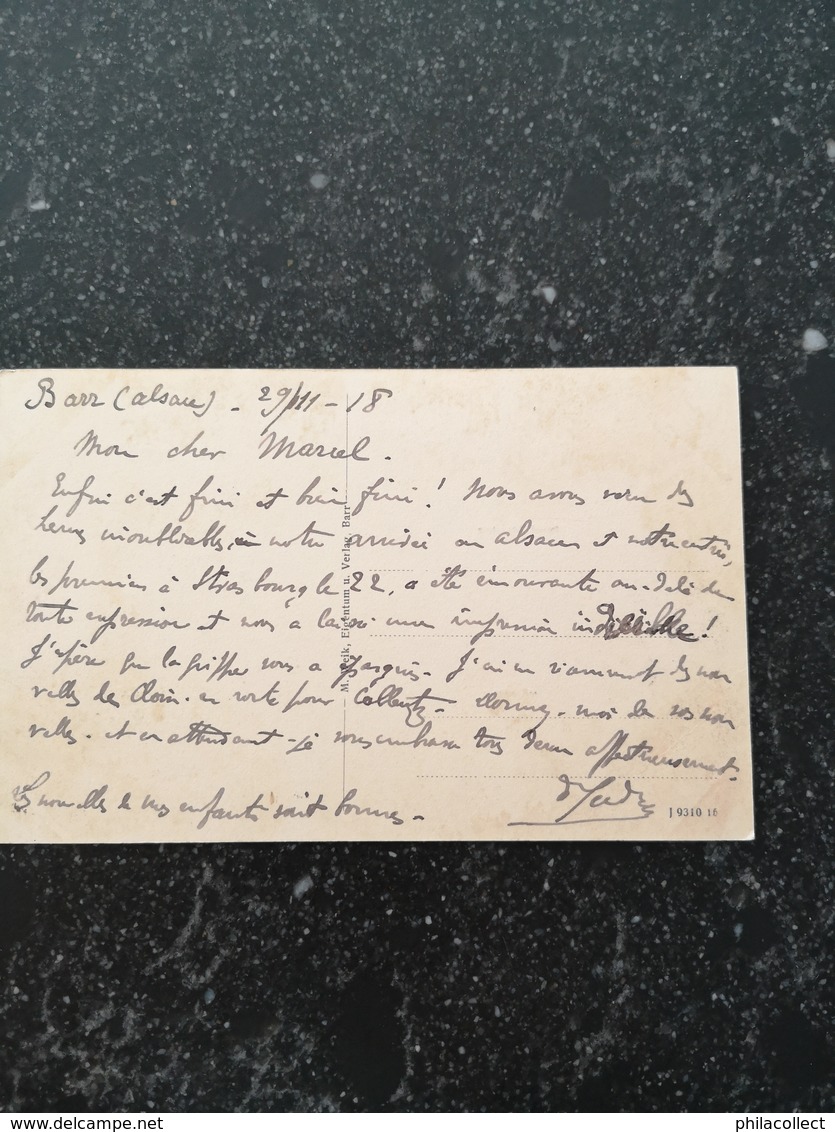 Barr (Alsace) - 29/11 - 18
Mon cher Marcel.
Enfin c'est fini et bien fini ! Nous avons vécu des
heures inoubliables, notre arrivée en Alsace et notre entrée,
les premiers à Strasbourg le 22, a été émouvante au-delà de
toute expression et nous a laissé une impression indicible !
J'espère que la grippe vous a épargnés. J'ai eu récemment des nou
velles de en route pour - Donnez-moi de vos nou
velles - et en attendant - je vous embrasse tous deux affectueusement.
Les nouvelles de mes enfants sont bonnes -
M. Eigentum u. Verlag, Barr
J 9310 16
delcampe.net
philacollect